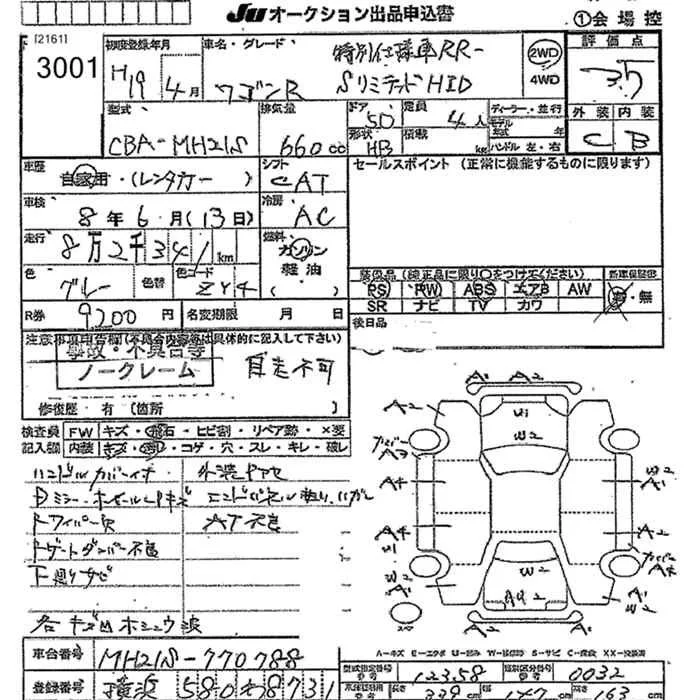 JU オークション出品申込書 ①会場控
[2161]
3001
初度登録年月 車名・グレード 評価点
H19年4月 ワゴンR 特別仕様車RR-Sリミテッド HID 2WD 4WD 3.5
型式 排気量 ドア 定員 ディーラー・並行 外装 内装
CBA-MH21S 660cc 5D 4人 モデル 年式 C B
形状 HB 積載 kg ハンドル 左・右
車歴 シフト セールスポイント (正常に機能するものに限ります)
自家用・(レンタカー) CAT
車検 冷房
8年6月(13日) AC
走行 燃料
8万2千341km ガソリン
軽油
( )
色 色替 色コード 装備品(純正品に限り○をつけてください) 新車保証書
グレー ZY4 PS PW ABS エアB AW 有・無
SR ナビ TV カワ
R券 9200円 名変期限 月 日 後日品
注意事項申告欄(不具合内容等は具体的に記入して下さい)
事故・不具合等
ノークレーム 自走不可
修復歴・有 [箇所 ]
検査員 FW キズ・飛石・ヒビ割・リペア跡・×要
記入欄 内装 キズ・コゲ・穴・スレ・キレ・破レ
ハンドルカバーイキ 外装ヤセ
ドミラー・ホイールCPキズ エンドパネル
ドワイパー欠 AT不良
ドゲートダンパー不良
下廻りサビ
各キズ凹ホシュウ波
A1 A2
A2 A1
U1
W2
カバー A3
A4 W2 A1
A4 A2
U1 カバー A2
W2
W2
A1 AW2 A1 W2
A2 A1
A-キズ E-エクボ U-凹み W-板修跡 S-サビ C-腐食 XX-交換済
車台番号 MH21S-770788 型式指定番号 12358 類別区分番号 0032
登録番号 横浜 580わ8731 長さ 339cm 幅 147cm 高さ 163